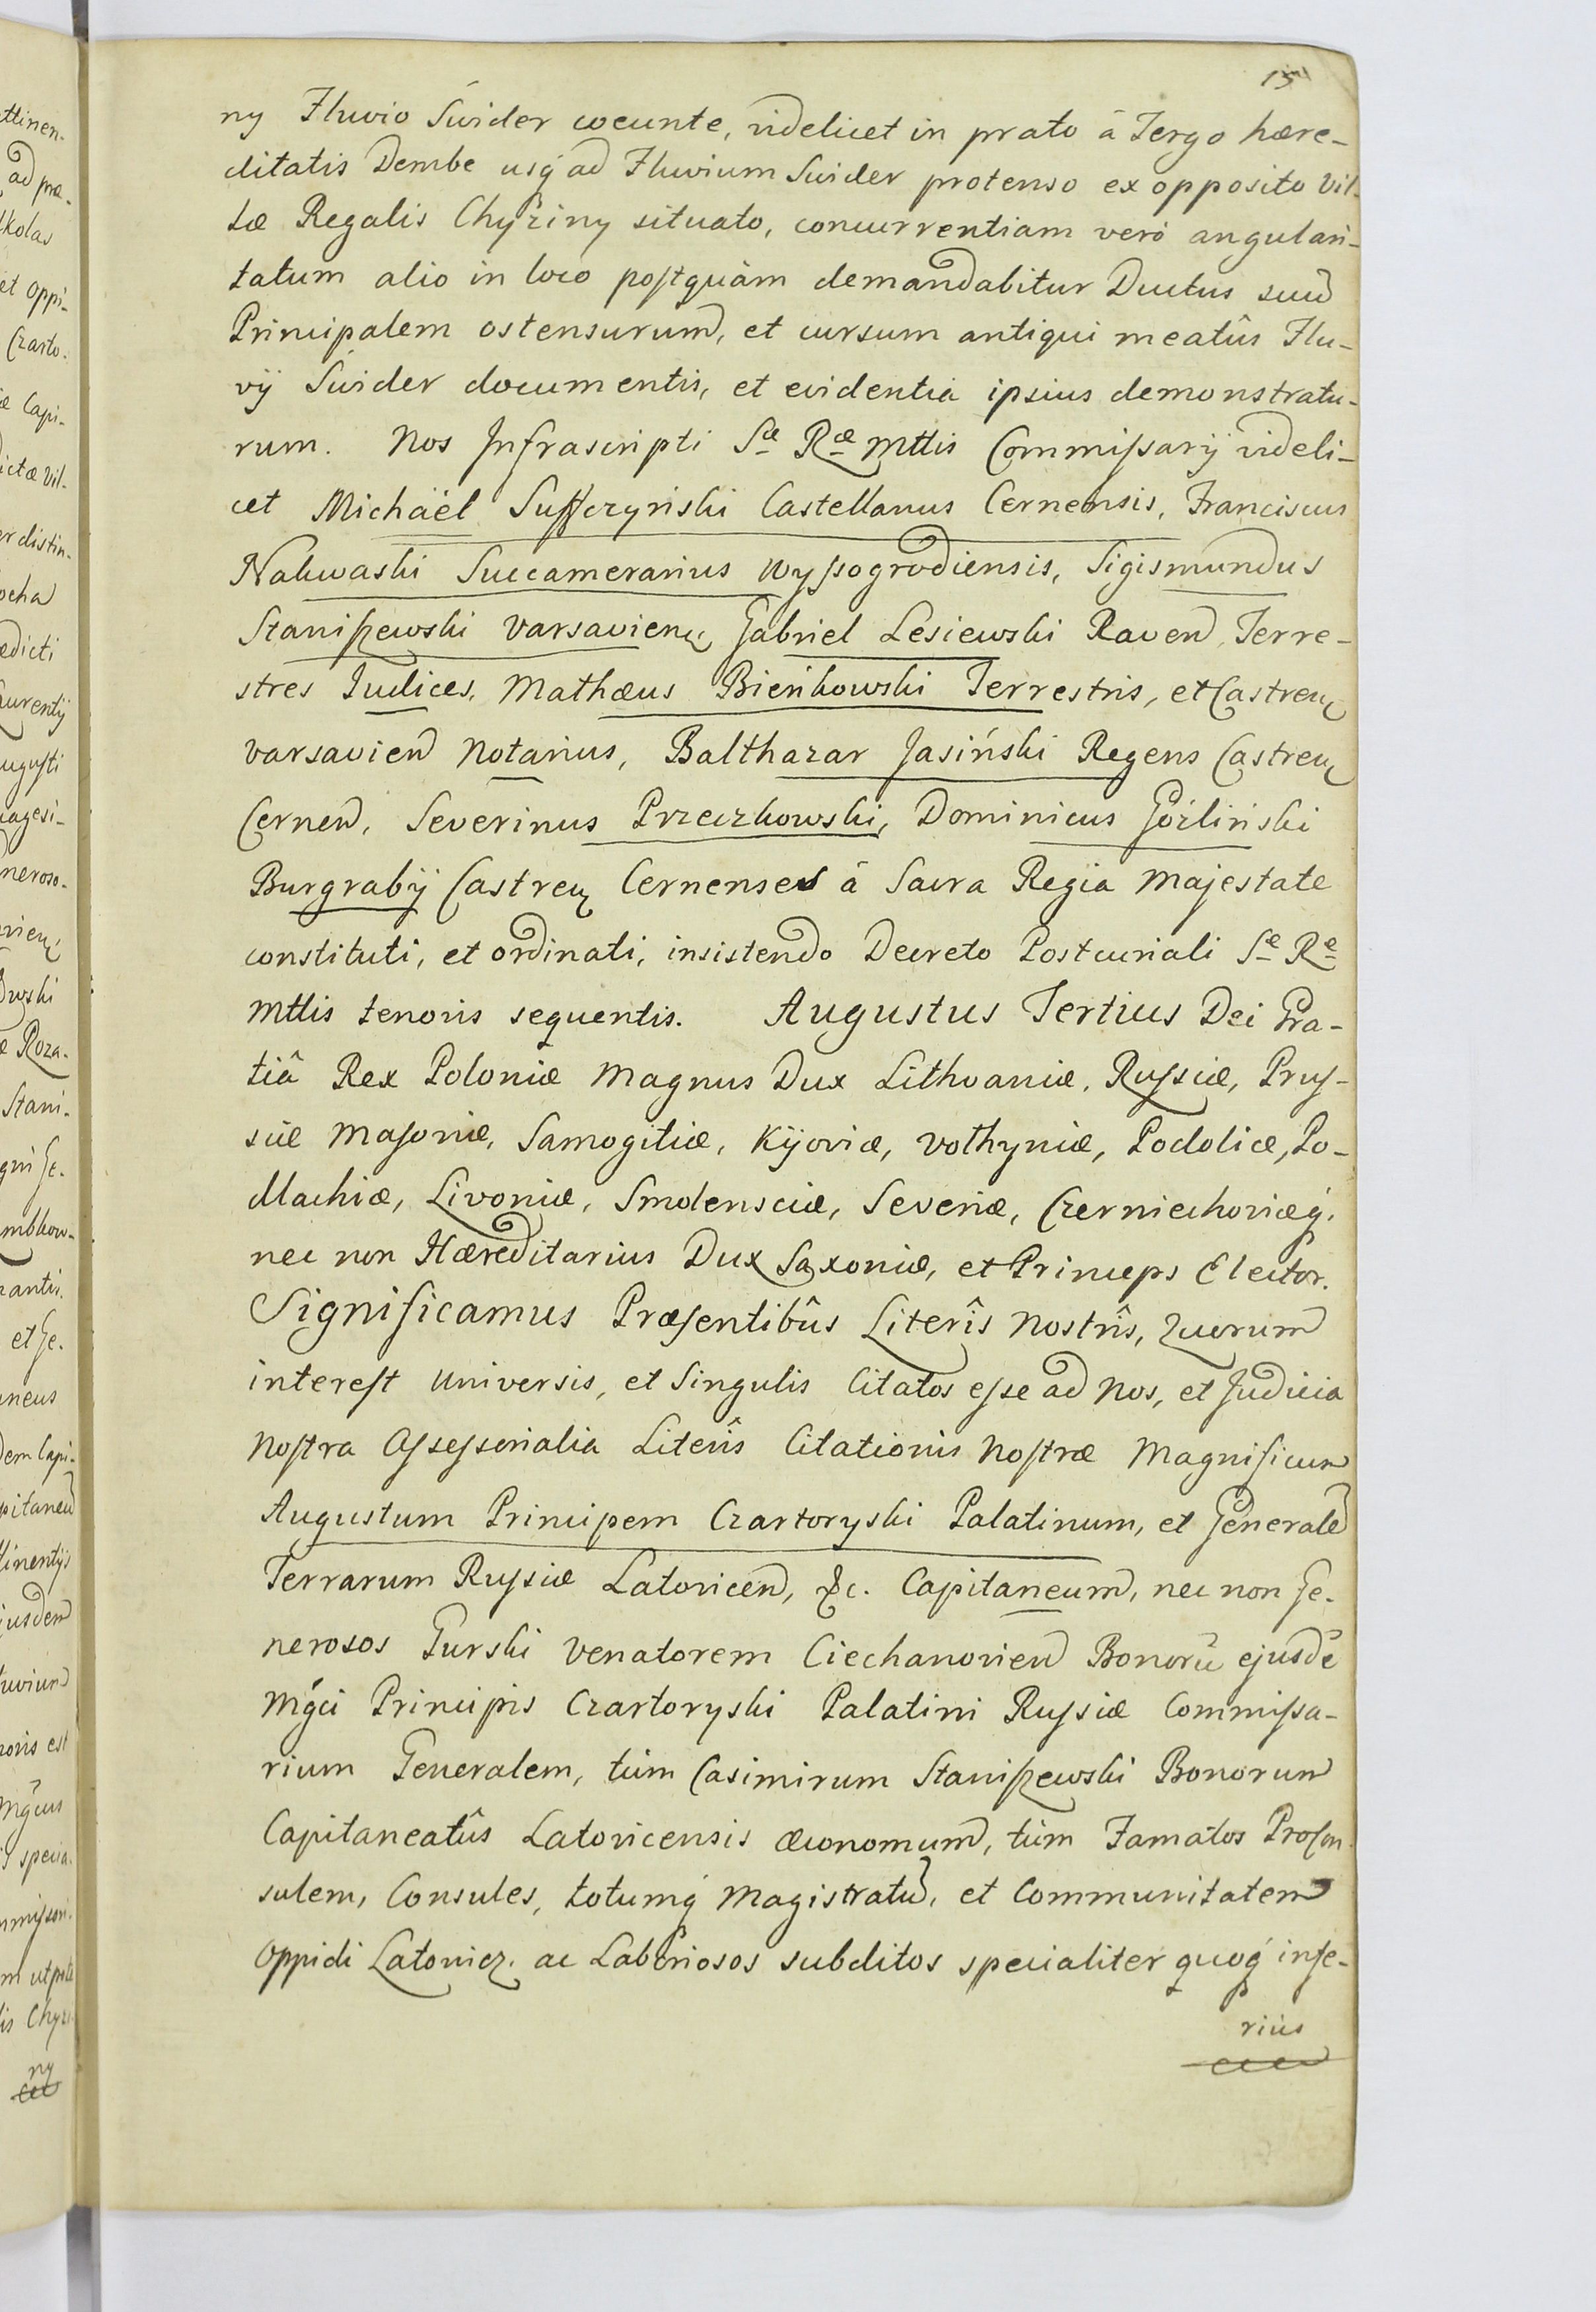 ny Fluvio Świder coeunte, videlicet in prato à Tergo hære-
ditatis Dembe usq́ ad Fluvium Swider protenso ex opposito Vil-
læ Regalis Chyżiny situato, concurrentiam verò angulari-
tatum alio in loco postquàm demandabitur Ductus suũ
Principalem ostensurum, et cursum antiqui meatûs Flu-
vij Świder documentis, et evidentia ipsius demonstratu-
rum. Nos Infrascripti Sæ Ræ Mttis Commissarij videli-
cet Michaël Suffczyński Castellanus Cernensis, Franciscus
Nakwaski Succamerarius Wyssogrodiensis, Sigismundus
Staniszewski Varsavien, Gabriel Lesiewski Raven, Terre-
stres Iudices, Mathæus Bieńkowski Terrestris, et Castren
Varsavien Notarius, Balthazar Jasiński Regens Castren
Cernen, Severinus Przeczkowski, Dominicus Goźliński
Burgrabij Castren Cernenses à Sacra Regia Majestate
constituti, et ordinati, insistendo Decreto Postcuriali Sæ Ræ
Mttis tenoris sequentis. Augustus Tertius Dei Gra-
tiâ Rex Poloniæ Magnus Dux Lithvaniæ, Russiæ, Prus-
siæ Masoviæ, Samogitiæ, Kijoviæ, Volhyniæ, Podoliæ, Po-
dlachiæ, Livoniæ, Smolensciæ, Severiæ, Czerniechoviæq́.
nec non Hæreditarius Dux Saxoniæ, et Princeps Elector.
Significamus Præsentibûs Literîs Nostrîs, Quorum
interest Universis, et Singulis Citatos esse ad Nos, et Judicia
Nostra Assessorialia Literîs Citationis Nostræ Magnificum
Augustum Principem Czartoryski Palatinum, et Generalẽ
Terrarum Russiæ Latovicen, &c. Capitaneum, nec non Ge-
nerosos Turski Venatorem Ciechanovien Bonorũ ejusdẽ
Mǵci Principis Czartoryski Palatini Russiæ Commissa-
rium Generalem, tùm Casimirum Staniszewski Bonorum
Capitaneatûs Latovicensis œconomum, tùm Famatos Procon-
sulem, Consules, totumq́ Magistratũ, et Communitatem
Oppidi Latowicz. ac Laboriosos subditos specialiter quoq́ infe-
riùs